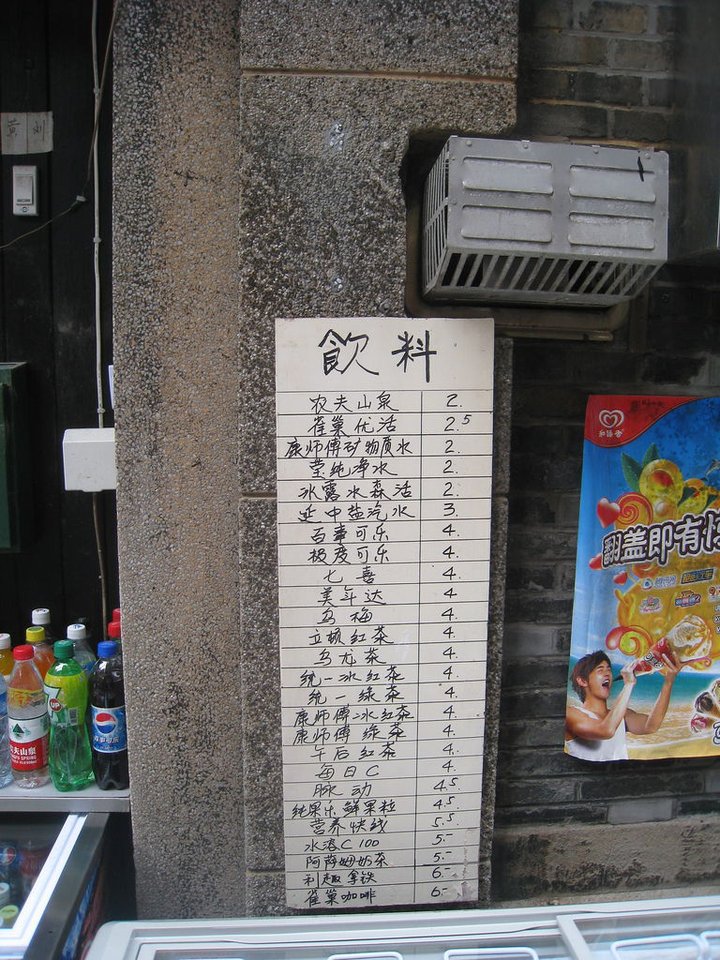 飲料
农夫山泉 2.
雀巢优活 2.5
康师傅矿物质水 2.
莹纯净水 2.
冰露水森活 2.
延中盐汽水 3.
百事可乐 4.
极度可乐 4.
七喜 4.
美年达 4.
乌梅 4.
立顿红茶 4.
乌龙茶 4.
统一冰红茶 4.
统一绿茶 4.
康师傅冰红茶 4.
康师傅绿茶 4.
午后红茶 4.
每日C 4.
脉动 4.5
纯果乐鲜果粒 4.5
营养快线 5.5
水溶C100 5.-
阿萨姆奶茶 5.-
利趣拿铁 6.-
雀巢咖啡 6.-
和路雪
翻盖即有
农夫山泉
百事可乐